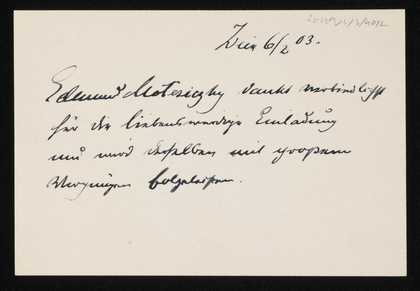 Wien 6/2 03.
Edmund Motesiczky dankt verbindlichst
für die liebenswürdige Einladung
und wird derselben mit grossem
Vergnügen folgeleisten.